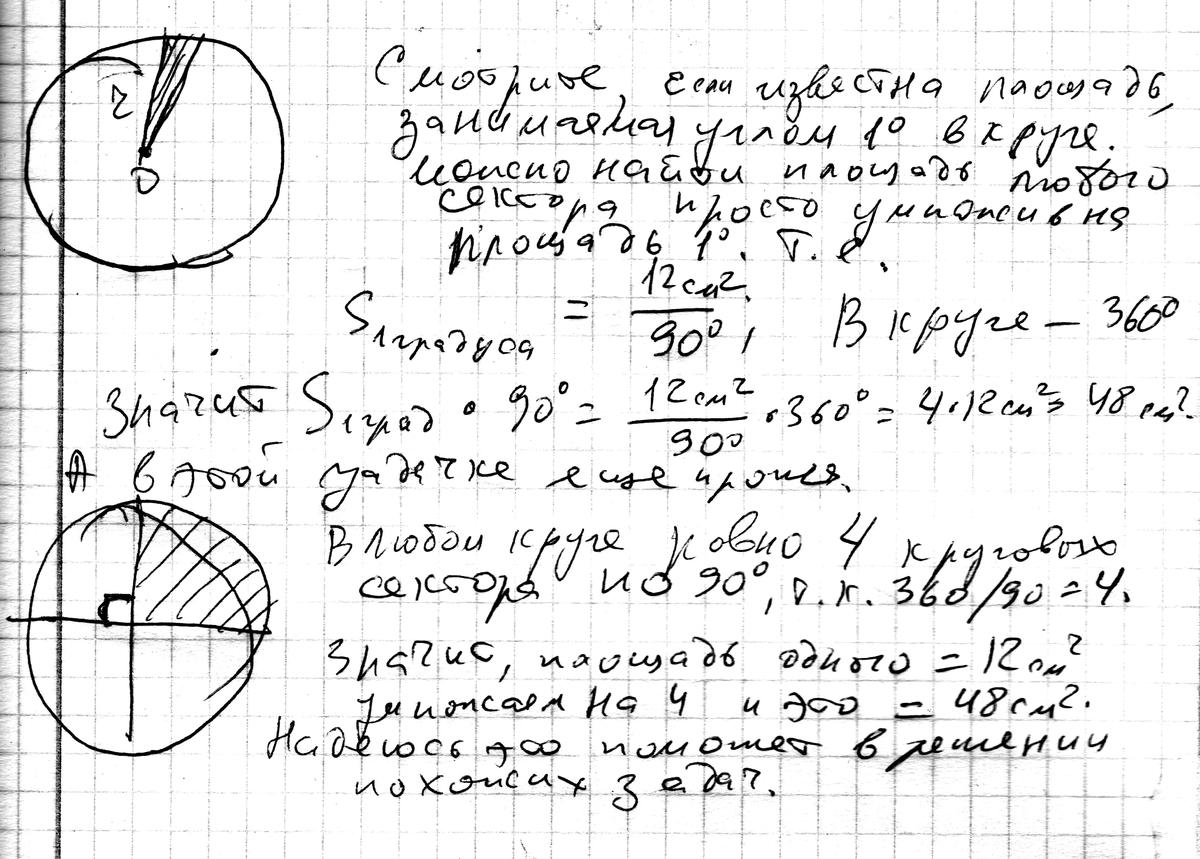 Смотрите, если известна площадь,
занимаемая углом 1° в круге.
можно найти площадь любого
сектора просто умножив на
площадь 1°. Т.е.
r
O
S1градуса = 12см²/90°, В круге – 360°
Значит S1град • 90° = 12см²/90° • 360° = 4•12см² = 48 см².
А в этой задачке еще проще.
В любом круге ровно 4 круговых
сектора по 90°, т.к. 360/90 = 4.
Значит, площадь одного = 12см²
умножаем на 4 и это = 48см².
Надеюсь это поможет в решении
похожих задач.